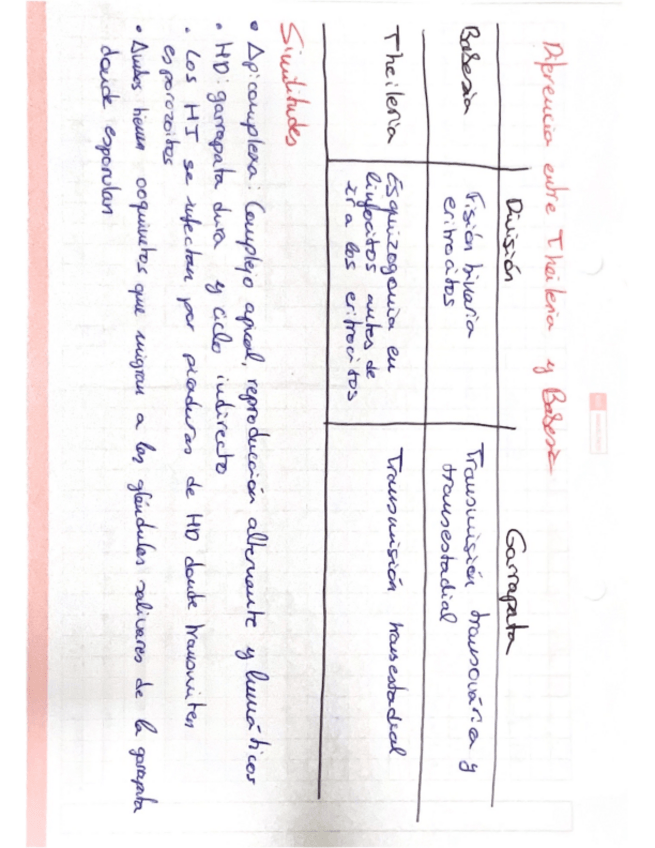 Diferencia entre Theileria y Babesia
División Garrapata
Babesia Fisión binaria eritrocitos Transmisión transovárica y transestadial
Theileria Esquizogonia en linfocitos antes de ir a los eritrocitos Transmisión transestadial
Similitudes
• Apicomplexa: Complejo apical, reproducción alternante y hemáticos
• HD: garrapata dura y ciclo indirecto
• Los HI se infectan por picaduras de HD donde transmiten
esporozoitos
• Ambos tienen ooquinetos que migran a las glándulas salivares de la garrapata
donde esporulan